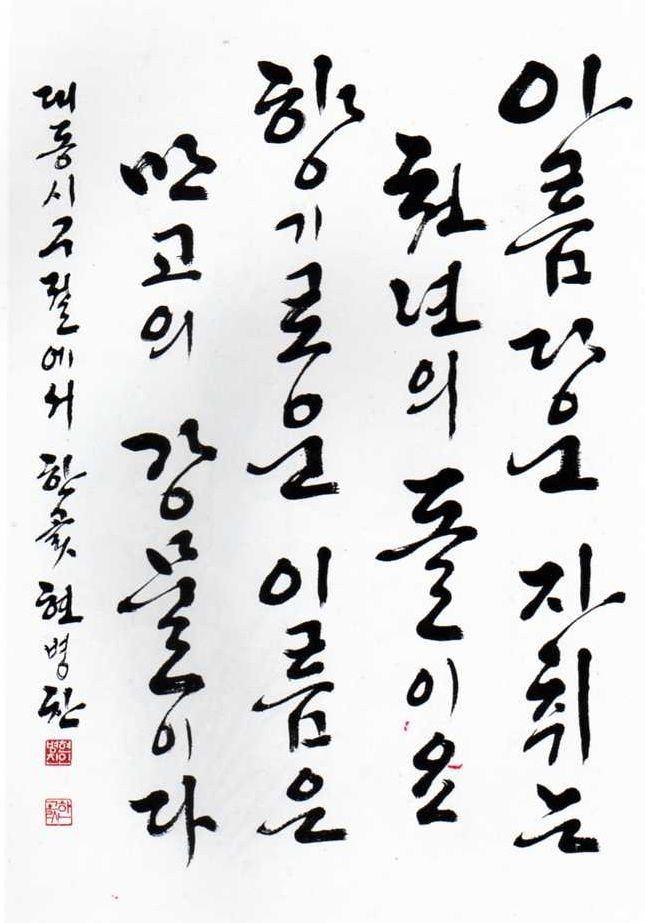 아름다운 자취는
천년의 돌이요
향기로운 이름은
만고의 강물이다
대동시 구절에서 한곬 현병찬